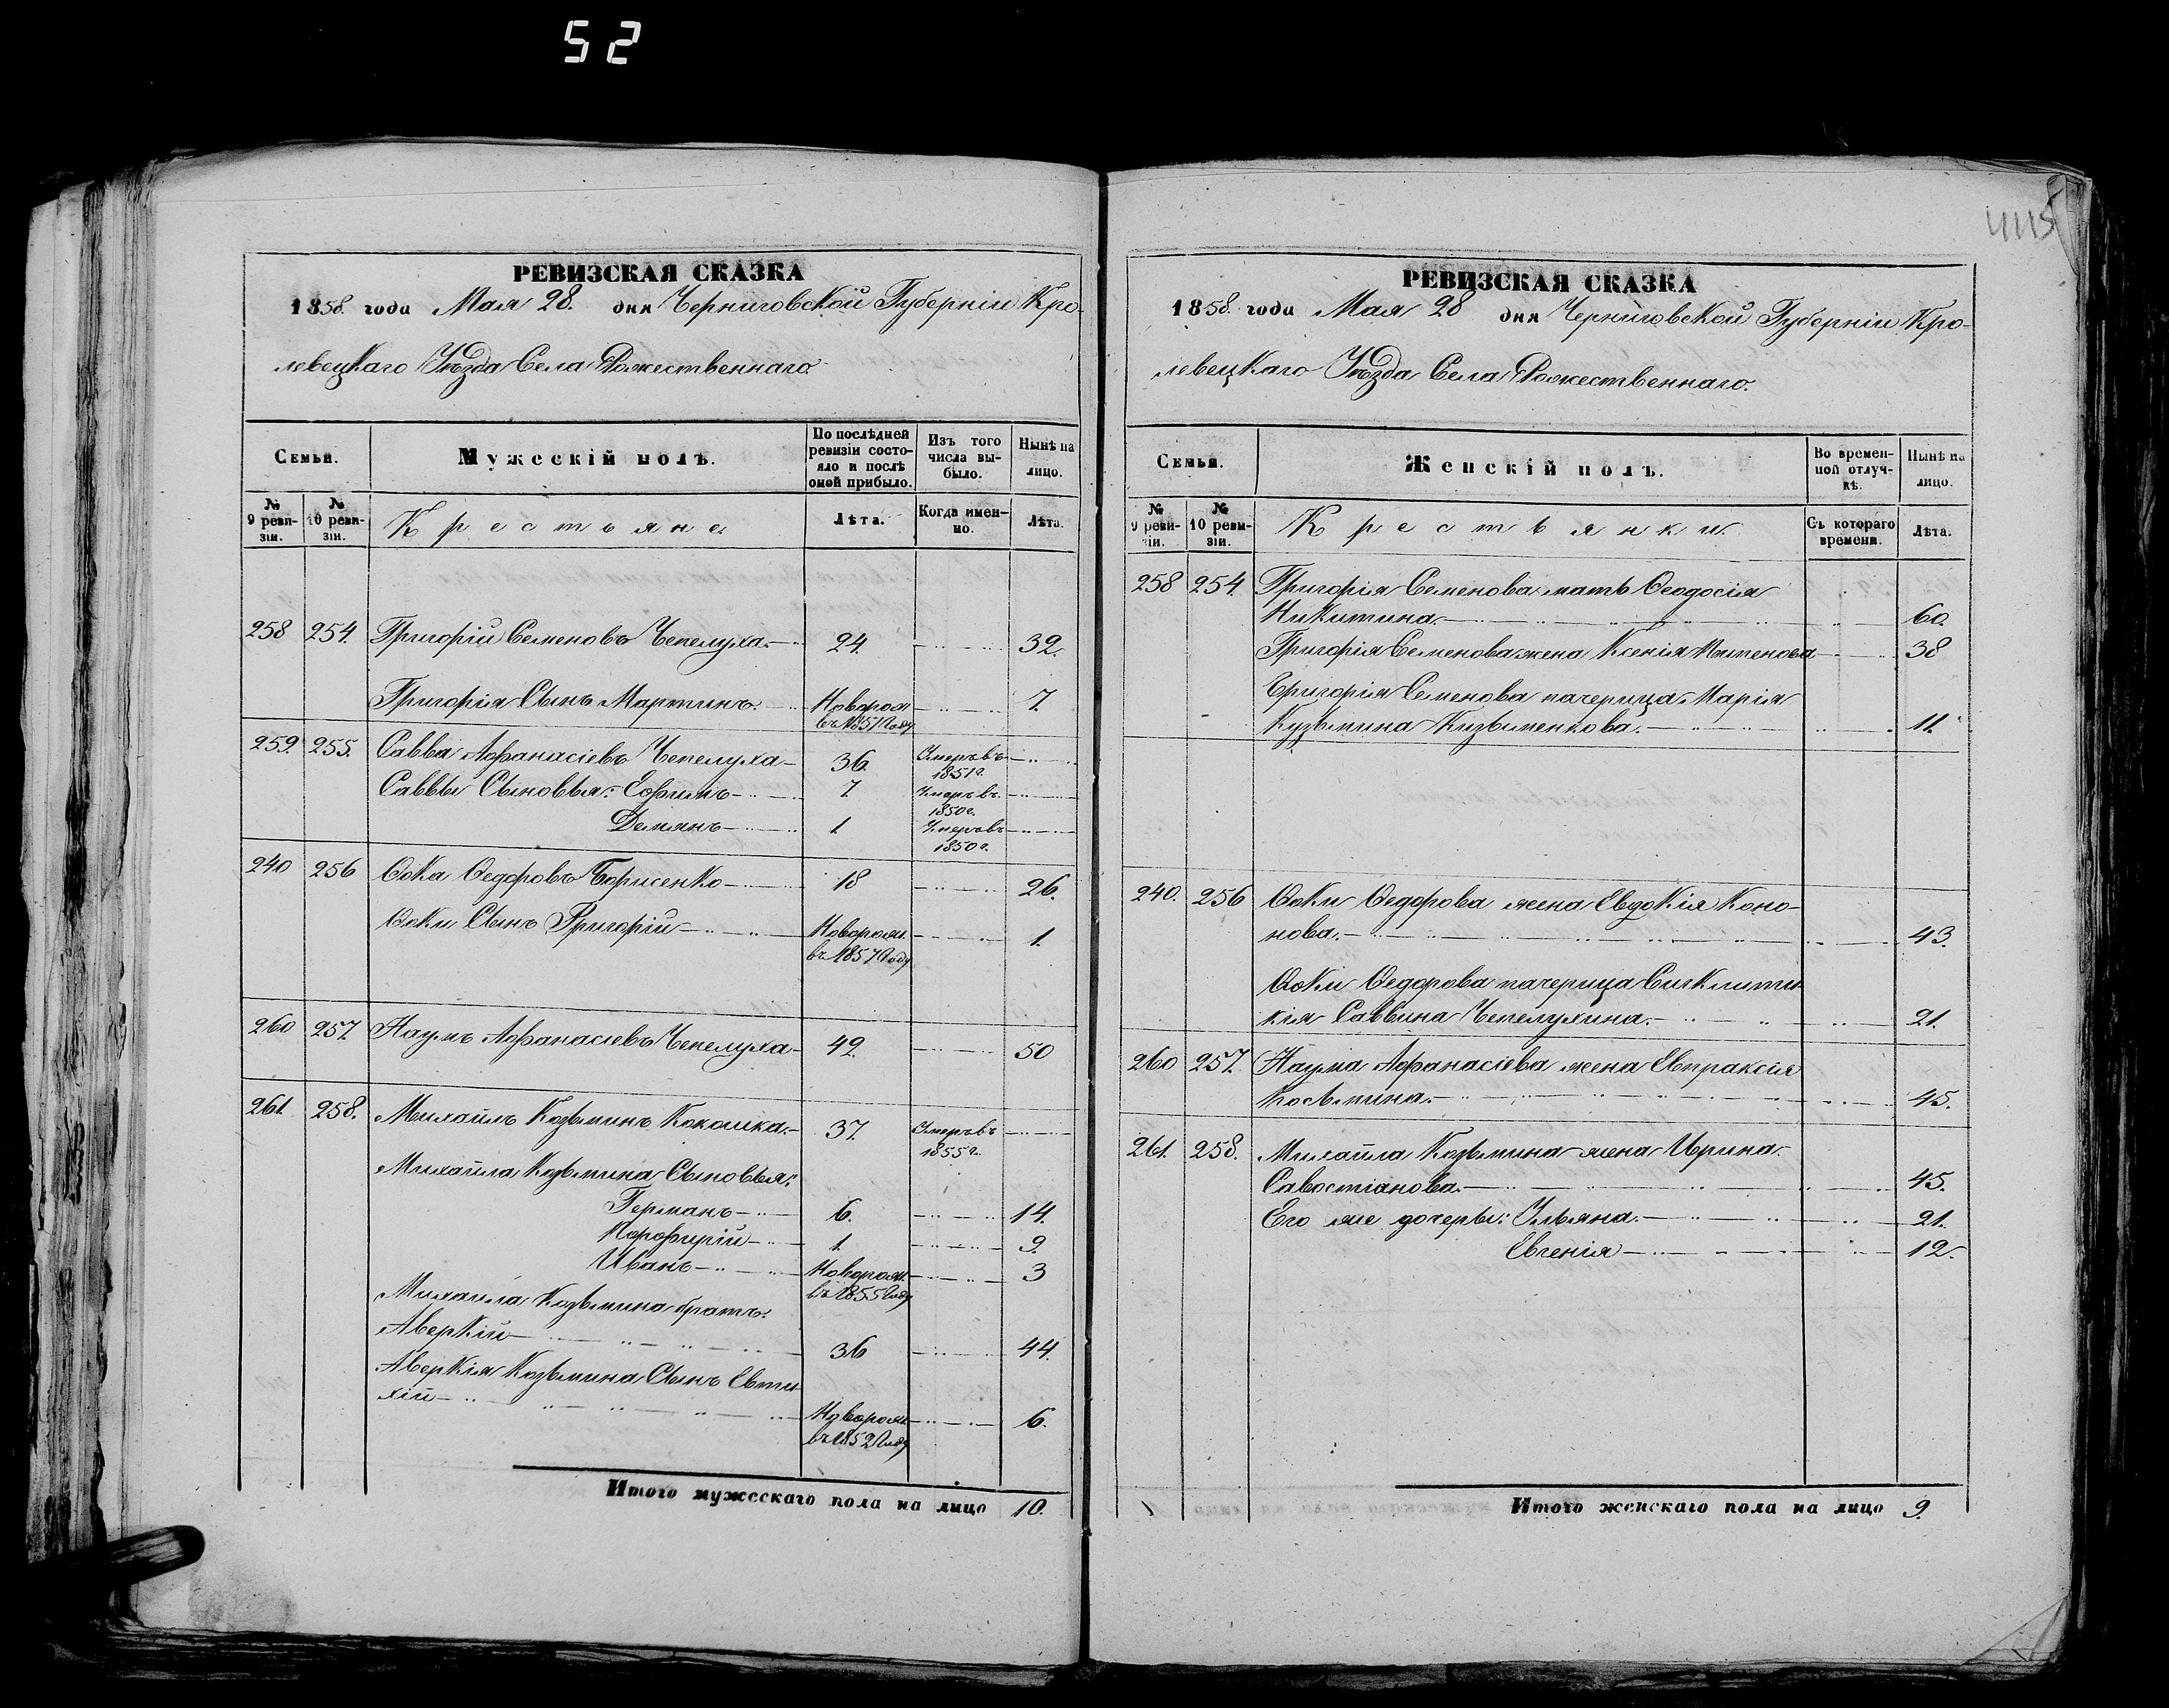 52
4115
РЕВИЗСКАЯ СКАЗКА
1858. года Мая 28. дня Черниговской Губерніи Кро-
левецкаго Уѣзда Села Рожественнаго.
Семьи.
Мужескій полъ.
По послѣдней
ревизіи состо-
яло и послѣ
оной прибыло.
Изъ того
числа вы-
было.
Нынѣ на
лицо.
№
9 реви-
зіи.
№
10 реви-
зіи.
Крестьяне
Лѣта.
Когда имен-
но.
Лѣта.
258 254. Григорій Семеновъ Чепелуха. 24. 32.
Григорія Сынъ Мартинъ.Новорож 7.
въ 1851 Году
259. 255. Савва Афанасіевъ Чепелуха 36. Умеръ въ
1851 г.
Саввы Сыновья: Ефимъ 7. Умеръ въ
1850 г.
Демянъ 1. Умеръ въ
1850 г.
240 256 Фока Федоровъ Борисенко 18 26.
Фоки Сынъ Григорій Новорож. 1.
въ 1857 Году
260 257. Наумъ Афанасіевъ Чепелуха 42. 50
261. 258. Михайлъ Козьминъ Кокошка. 37. Умеръ въ
1855 г.
Михайла Козьмина Сыновья:
Германъ 6. 14.
Порфирій 1. 9.
Иванъ Новорож. 3
въ 1855 Году
Михайла Козьмина братъ:
Аверкій 36 44.
Аверкія Козьмина Сынъ Евти
хій Новорож. 6.
въ 1852 Году
Итого мужескаго пола на лицо 10.
РЕВИЗСКАЯ СКАЗКА
1858. года Мая 28 дня Черниговской Губерніи Кро-
левецкаго Уѣзда Села Рожественнаго.
Семьи.
Женскій полъ.
Во времен-
ной отлуч-
кѣ.
Нынѣ на
лицо.
№
9 реви-
зіи.
№
10 реви-
зіи.
Крестьянки.
Съ котораго
времени.
Лѣта.
258 254. Григорія Семенова мать Феодосія
Никитина. 60.
Григорія Семенова жена Ксенія 38
Григорія Семенова пачерица Марія
Кузьмина Кизьменкова. 11.
240. 256 Фоки Федорова жена Евдокія Коно-
нова. 43.
Фоки Федорова пачерица Сигклити
кія Саввина Чепелухина. 21.
260 257. Наума Афанасіева жена Евпраксія
Косьмина. 45.
261. 258. Михайла Козьмина жена Ирина
Савостіанова. 45.
Его же дочеры: Ульяна. 21.
Евгенія 12.
Итого женскаго пола на лицо 9.